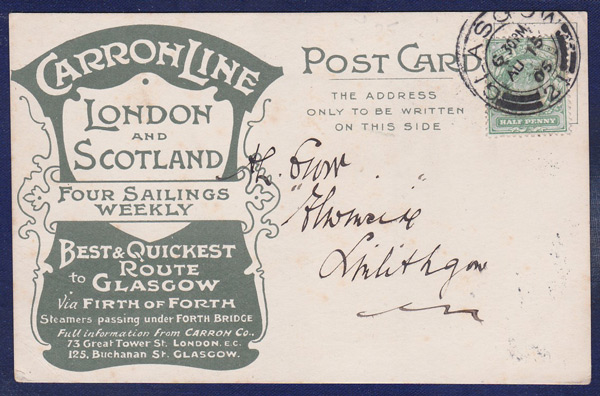 CARRON LINE
LONDON
AND
SCOTLAND
FOUR SAILINGS
WEEKLY
BEST & QUICKEST
ROUTE
to GLASGOW
Via FIRTH OF FORTH
Steamers passing under FORTH BRIDGE
Full information from CARRON Co.,
73 Great Tower St. LONDON. E.C.
125, Buchanan St. GLASGOW.
POST CARD
THE ADDRESS
ONLY TO BE WRITTEN
ON THIS SIDE
GLASGOW
6.30PM
AU 15
05
21
HALF PENNY
Linlithgow